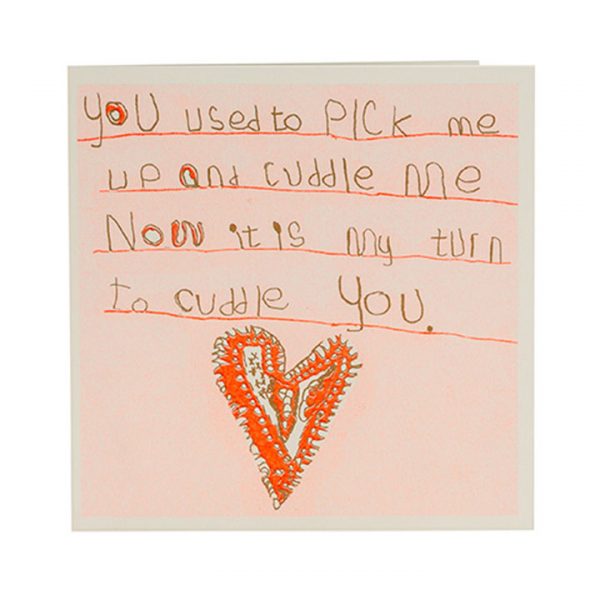 YOU used to PICK me
up and cuddle me
Now it is my turn
to cuddle you.